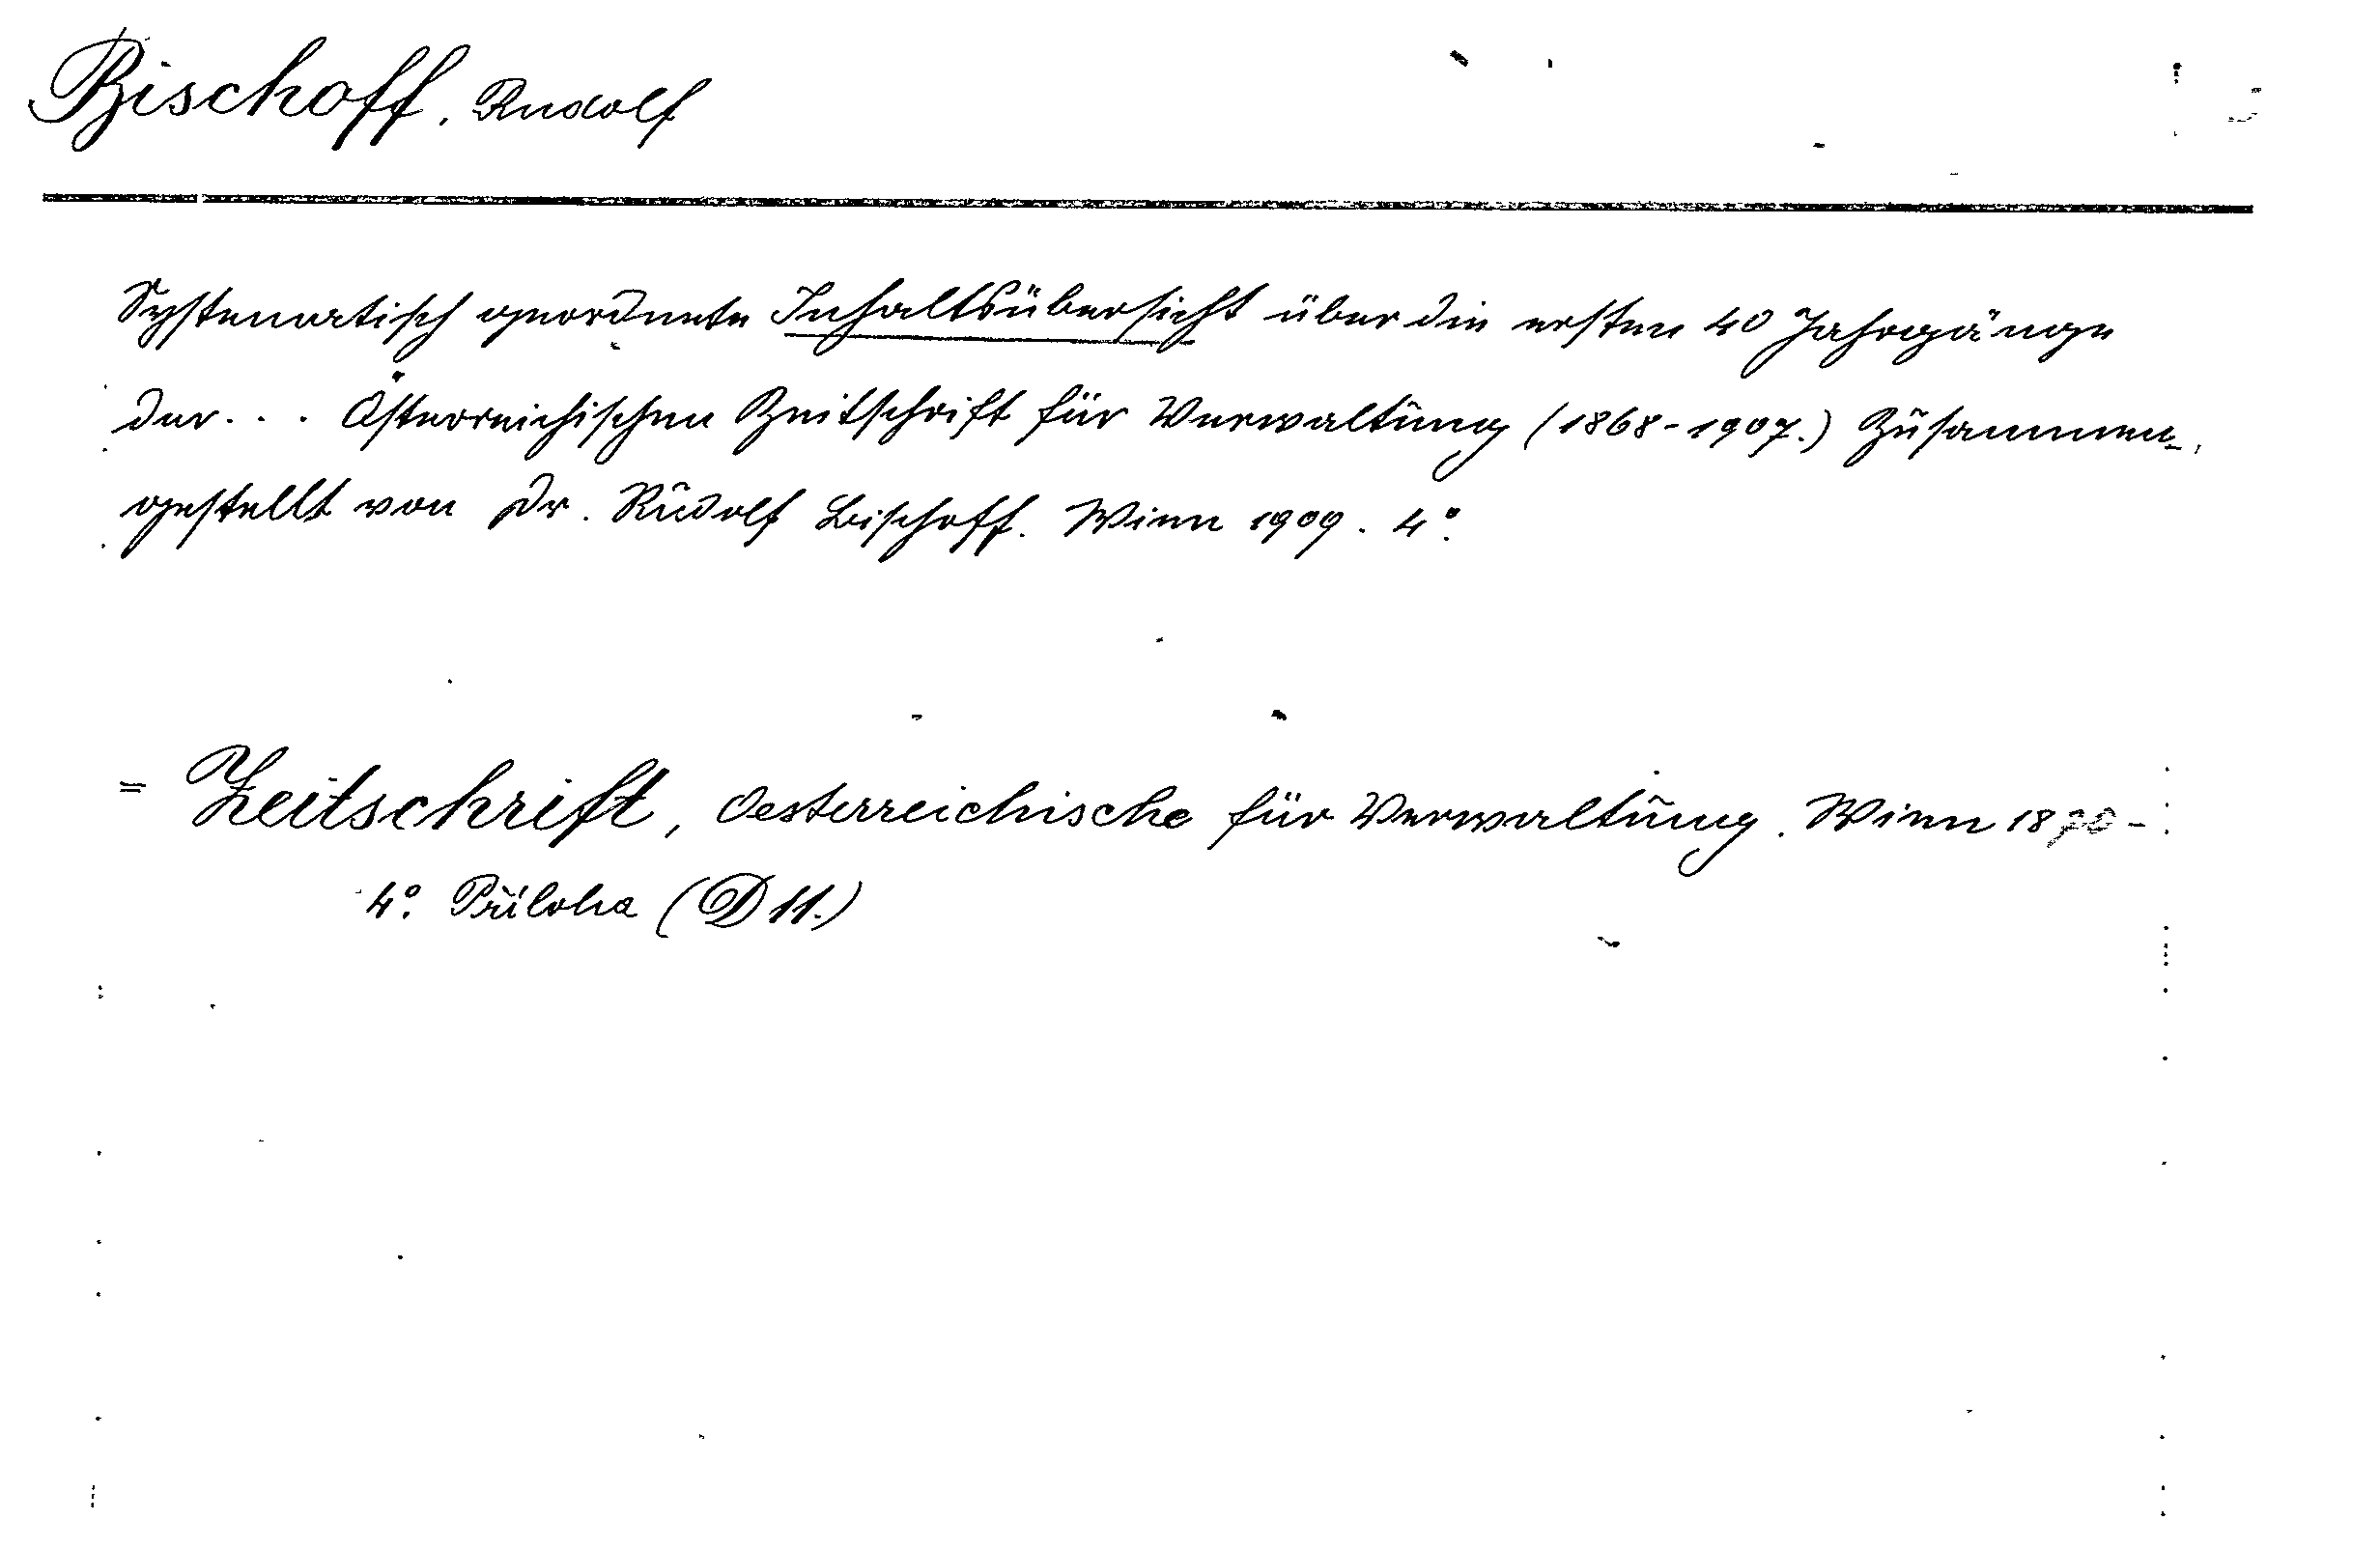 Bischoff, Rudolf
Systematisch geordnete Inhaltsübersicht über die ersten 40 Jahrgänge
der... Österreichischen Zeitschrift für Verwaltung (1868-1907.) Zusammen-
gestellt von Dr. Rudolf Bischoff. Wien 1909. 4°.
= Zeitschrift, Oesterreichische für Verwaltung. Wien 1870-
4°. Příloha (D 11.)